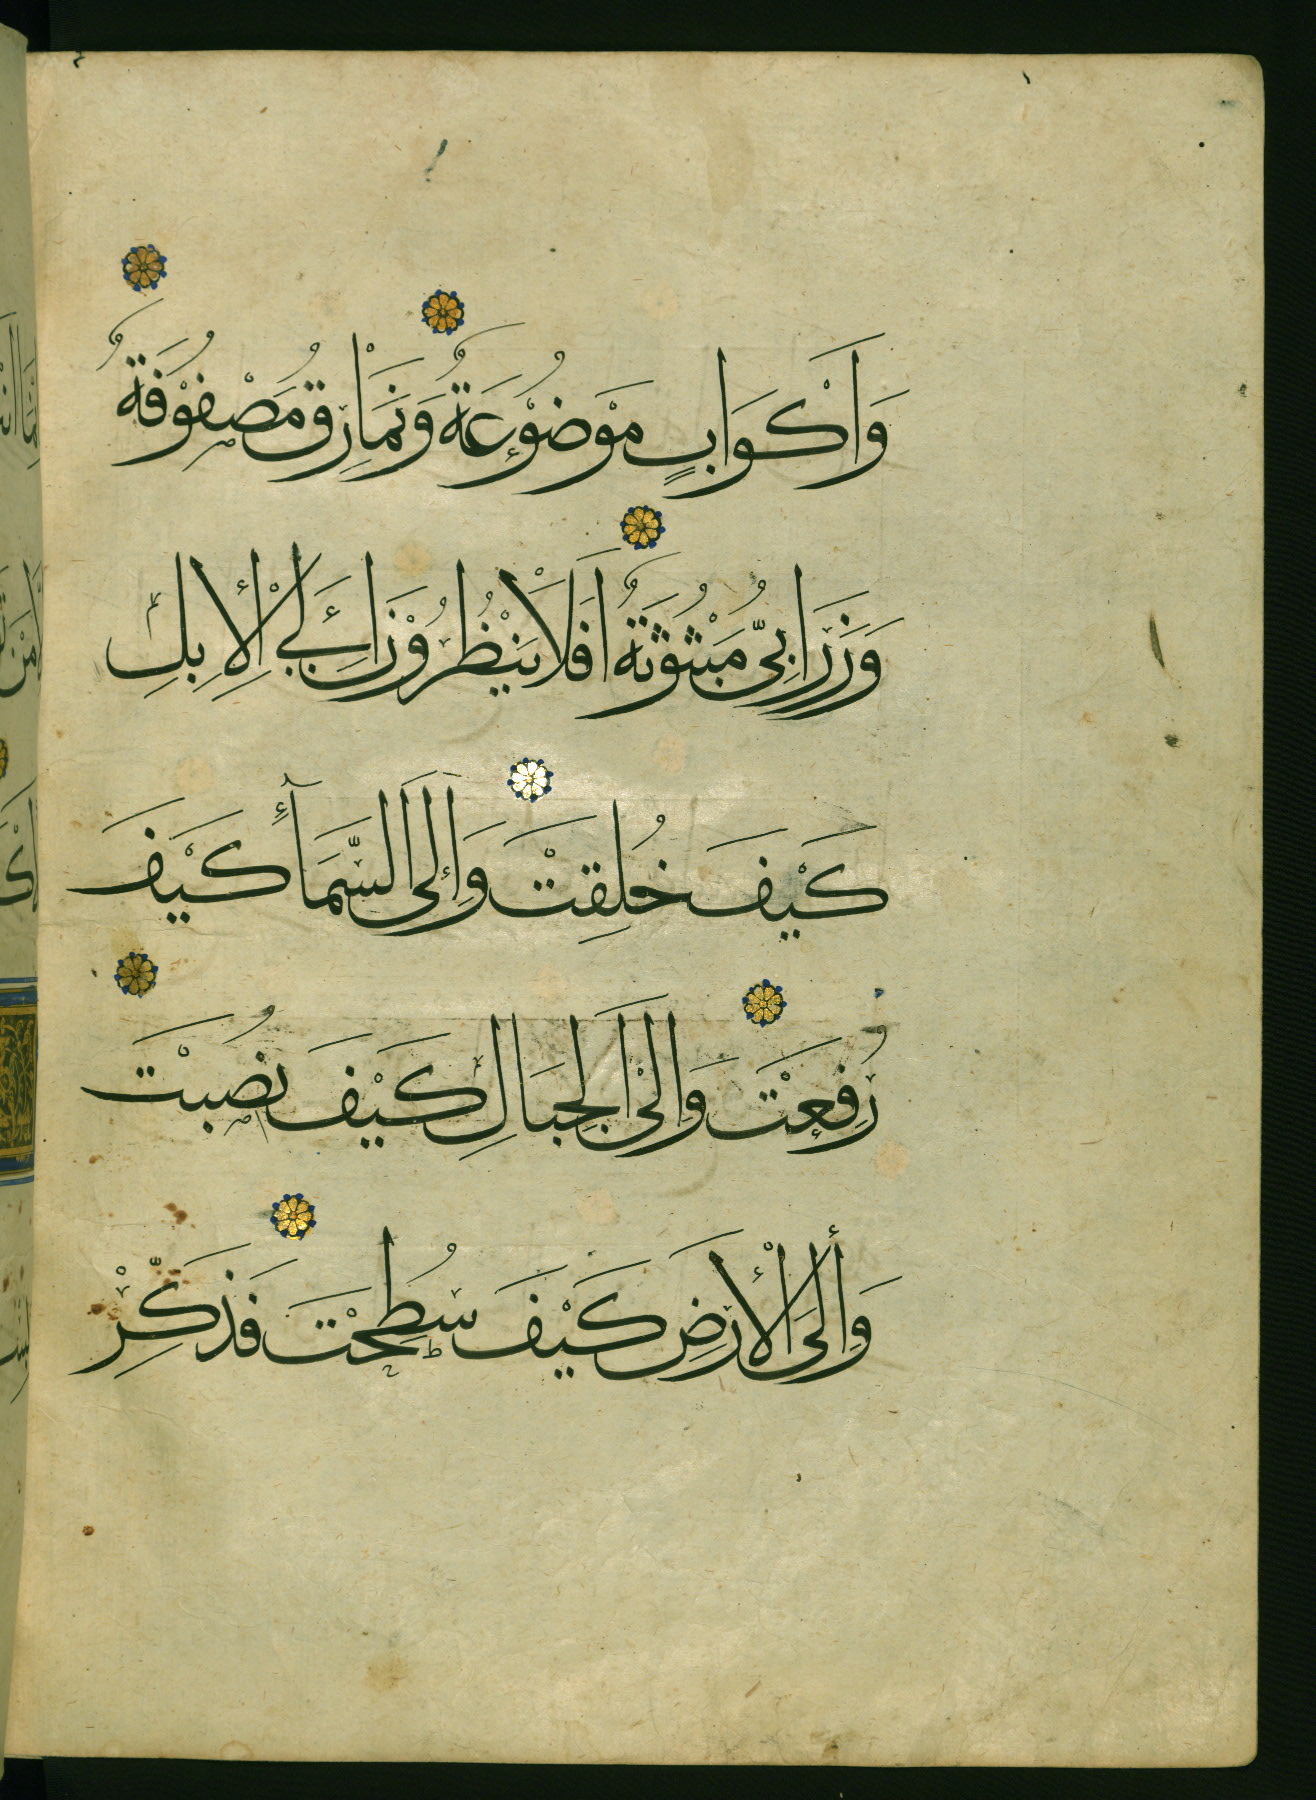 وَأَكْوَابٍ مَوْضُوْعَةٌ وَنَمَارِقُ مَصْفُوْفَةٌ
وَزَرَابِيُّ مَبْثُوْثَةٌ أَفَلَا يَنْظُرُوْنَ إِلَى الْإِبِلِ
كَيْفَ خُلِقَتْ وَإِلَى السَّمَآءِ كَيْفَ
رُفِعَتْ وَإِلَى الْجِبَالِ كَيْفَ نُصِبَتْ
وَإِلَى الْأَرْضِ كَيْفَ سُطِحَتْ فَذَكِّرْ